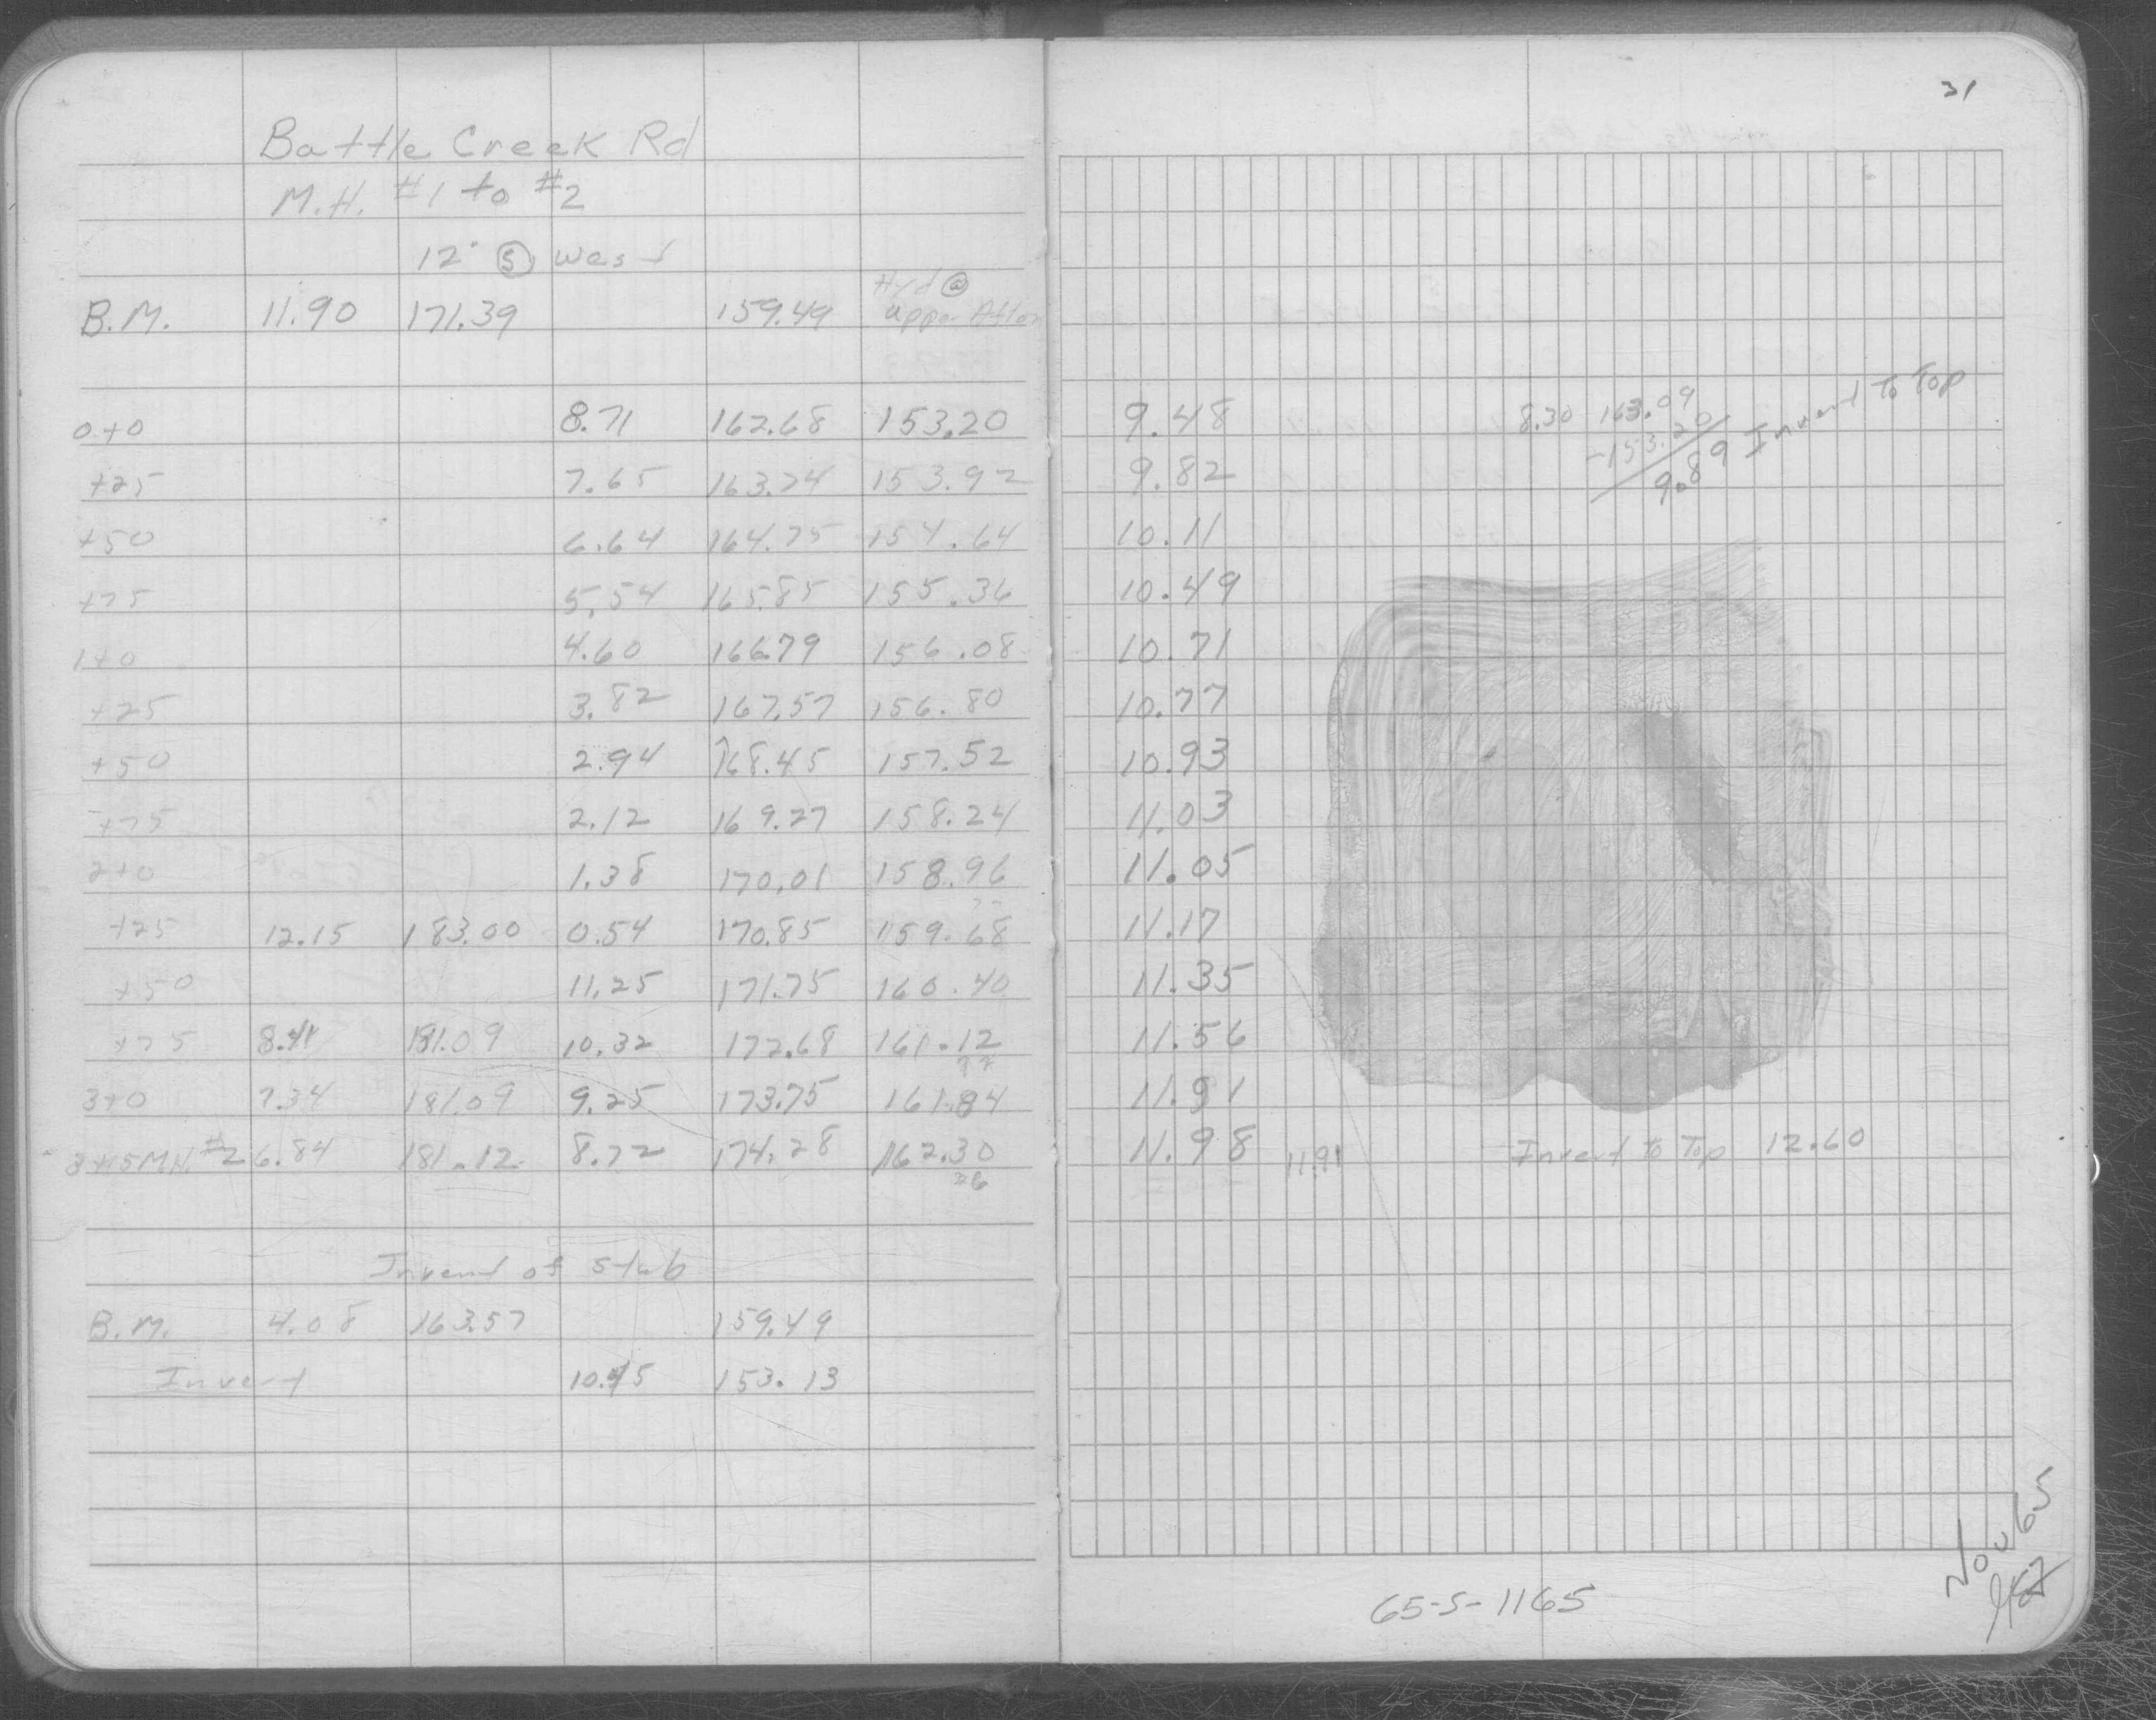 31
Battle Creek Rd
M.H. #1 to #2
12" S West
Hyd @
B.M. 11.90 171.39 159.49 Upper Afton
0+0 8.71 162.68 153.20 9.48 8.30 163.09
-153.20
9.89 Invert To Top
+25 7.65 163.74 153.92 9.82
+50 6.64 164.75 154.64 10.11
+75 5.54 165.85 155.36 10.49
1+0 4.60 166.79 156.08 10.71
+25 3.82 167.57 156.80 10.77
+50 2.94 168.45 157.52 10.93
+75 2.12 169.27 158.24 11.03
2+0 1.38 170.01 158.96 11.05
+25 12.15 183.00 0.54 170.85 159.68 11.17
+50 11.25 171.75 160.40 11.35
+75 8.41 181.09 10.32 172.68 161.12 11.56
3+0 7.34 181.09 9.25 173.75 161.84 11.91
3+15 MH. #2 6.84 181.12 8.72 174.28 162.30 11.98 11.91 Invert To Top 12.60
Invert of stub
B.M. 4.08 163.57 159.49
Invert 10.45 153.13
65-S-1165
Nov 65